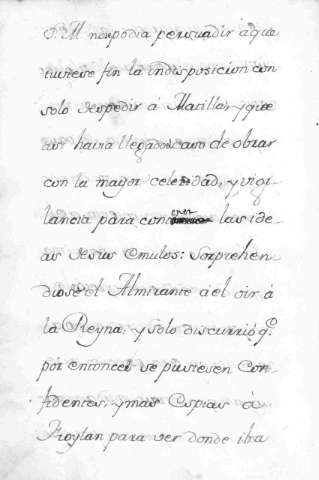 S. M. no podia persuadir à que
tuviese fin la indisposicion con
solo despedir à Matilla, y que
aun havia llegado el caso de obrar
con la mayor celeridad, y vigi-
lancia para conocer las ide-
as de sus Emulos: Sorprehen-
diose el Almirante à el oir à
la Reyna, y solo discurriò q.e
por entonces se pusiesen Con-
fidentes, y mas Espias à
Froylan para ver donde iba